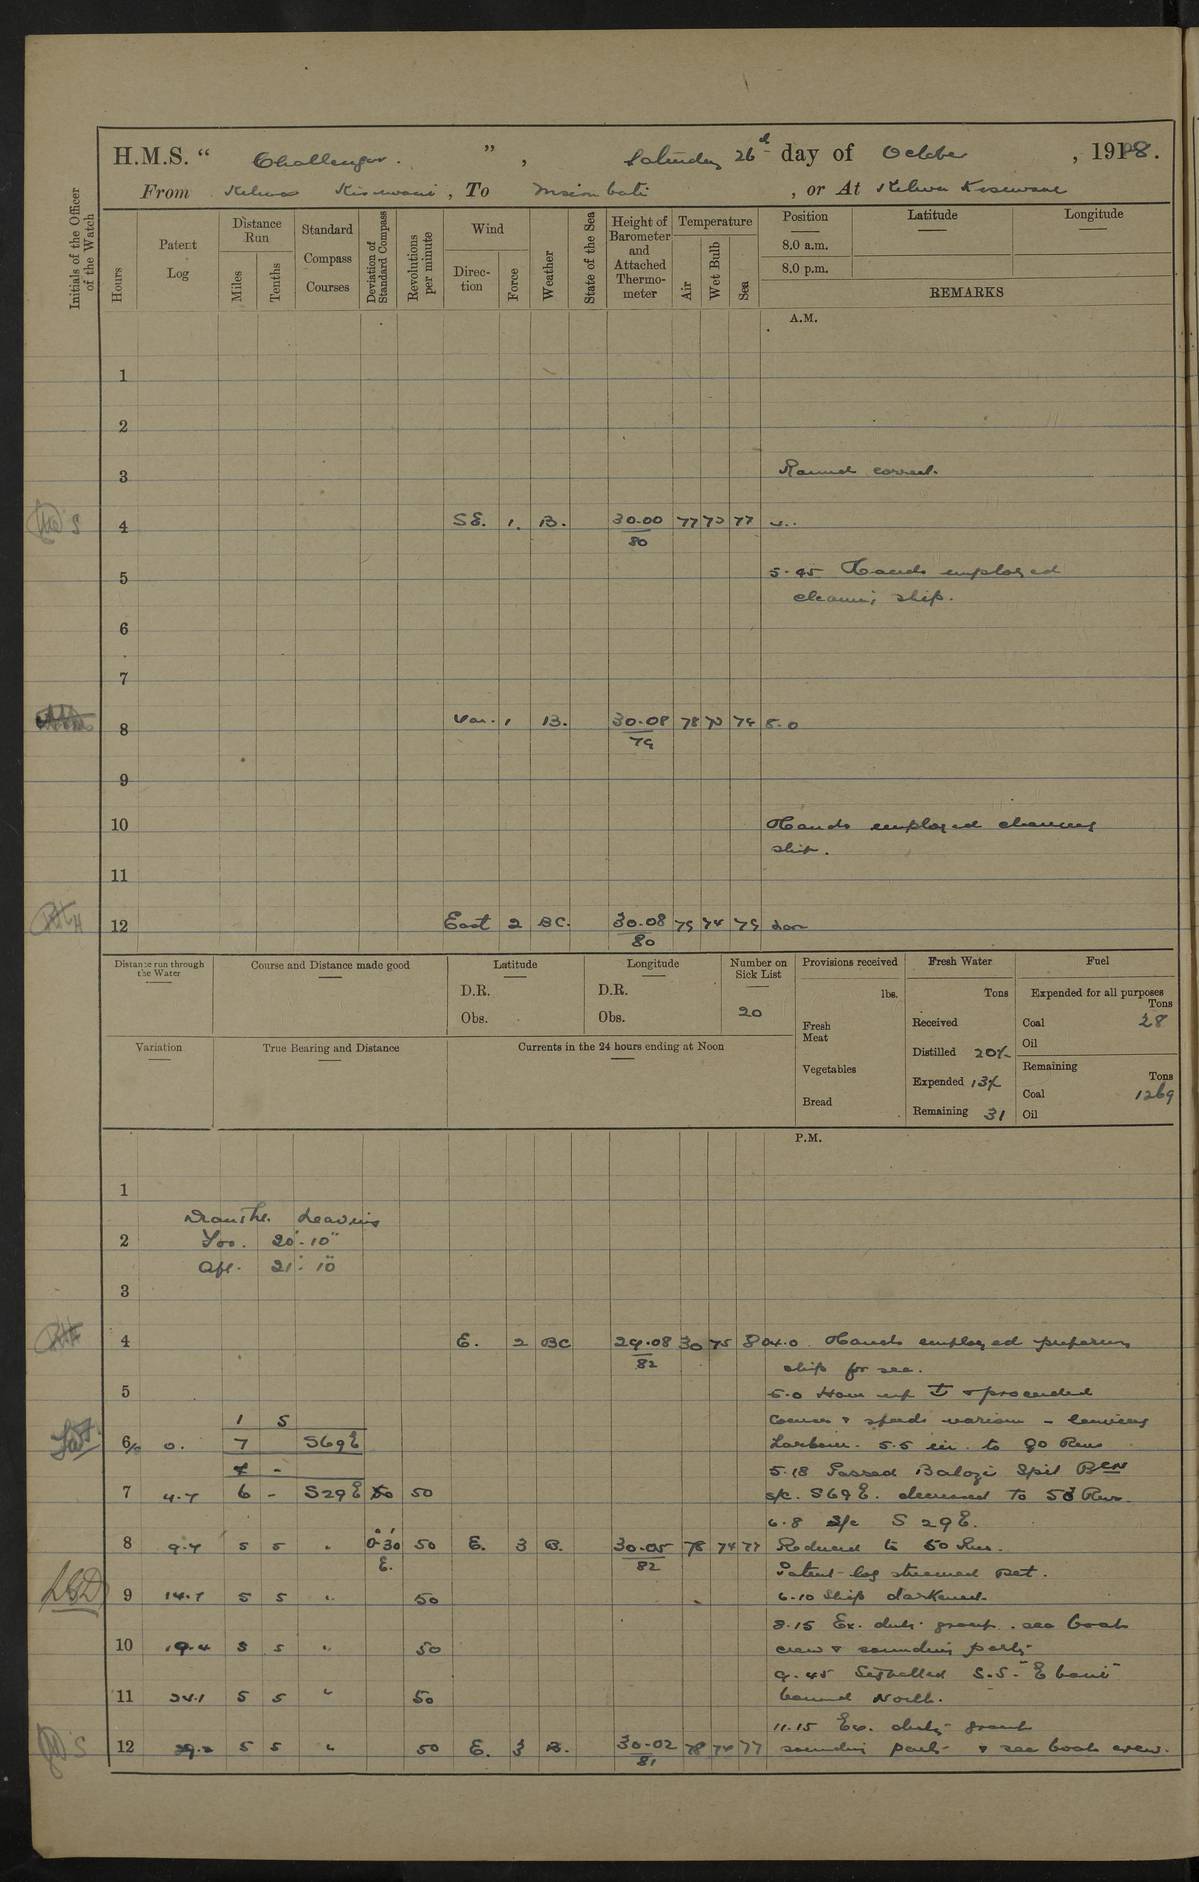 H.M.S. “ Challenger. ” , Saturday 26th day of October , 1918.
From Kilwa Kisiwani , To Msimbati , or At Kilwa Kisiwani
Initials of the Officer of the Watch
Hours
Patent Log
Distance Run
Miles
Tenths
Standard Compass Courses
Deviation of Standard Compass
Revolutions per minute
Wind
Direction
Force
Weather
State of the Sea
Height of Barometer and Attached Thermometer
Temperature
Air
Wet Bulb
Sea
Position
8.0 a.m.
8.0 p.m.
Latitude
Longitude
REMARKS
A.M.
1
2
3 Round correct.
4 SE. 1. B. 30.00 77 73 77
80
5 5.45 Hands employed
cleaning ship.
6
7
8 Var. 1 B. 30.08 78 73 79 8.0
79
9
10 Hands employed cleaning
ship.
11
12 East 2 BC. 30.08 79 74 79
80
Distance run through the Water
Course and Distance made good
Latitude
D.R.
Obs.
Longitude
D.R.
Obs.
Number on Sick List
20
Provisions received
lbs.
Fresh Meat
Vegetables
Bread
Fresh Water
Tons
Received
Distilled 20½
Expended 13½
Remaining 31
Fuel
Expended for all purposes
Tons
Coal 28
Oil
Remaining
Tons
Coal 1269
Oil
Variation
True Bearing and Distance
Currents in the 24 hours ending at Noon
P.M.
1
Draughts. Leaving
2 For. 20'.10"
Aft. 21'.10"
3
4 E. 2 BC 29.08 80 75 80 4.0 Hands employed preparing
82 ship for sea.
5 5.0 Hove up ⚓ & proceeded
1 5 Courses & speeds various - leaving
6 0. 7 S69E harbour. 5.5 in. to 90 Revs
4 - 5.18 Passed Balozi Spit Bcn
7 4.7 6 - S29E 50 s/c. S69E. decreased to 53 Revs.
6.8 s/c S 29 E.
8 9.7 5 5 " 0°.30' 50 E. 3 B. 30.05 78 74 77 Reduced to 50 Revs.
E. 82 Patent log streamed set.
9 14.7 5 5 " 50 6.10 Ship darkened.
8.15 Ex. duty guard. sea boats
10 19.4 5 5 " 50 crew & sounding party
9.45 Signalled S.S. "Ebani"
11 24.1 5 5 " 50 bound North.
11.15 Ex. duty guard
12 29.2 5 5 " 50 E. 3 B. 30.02 78 74 77 sounding party & sea boats crew.
81